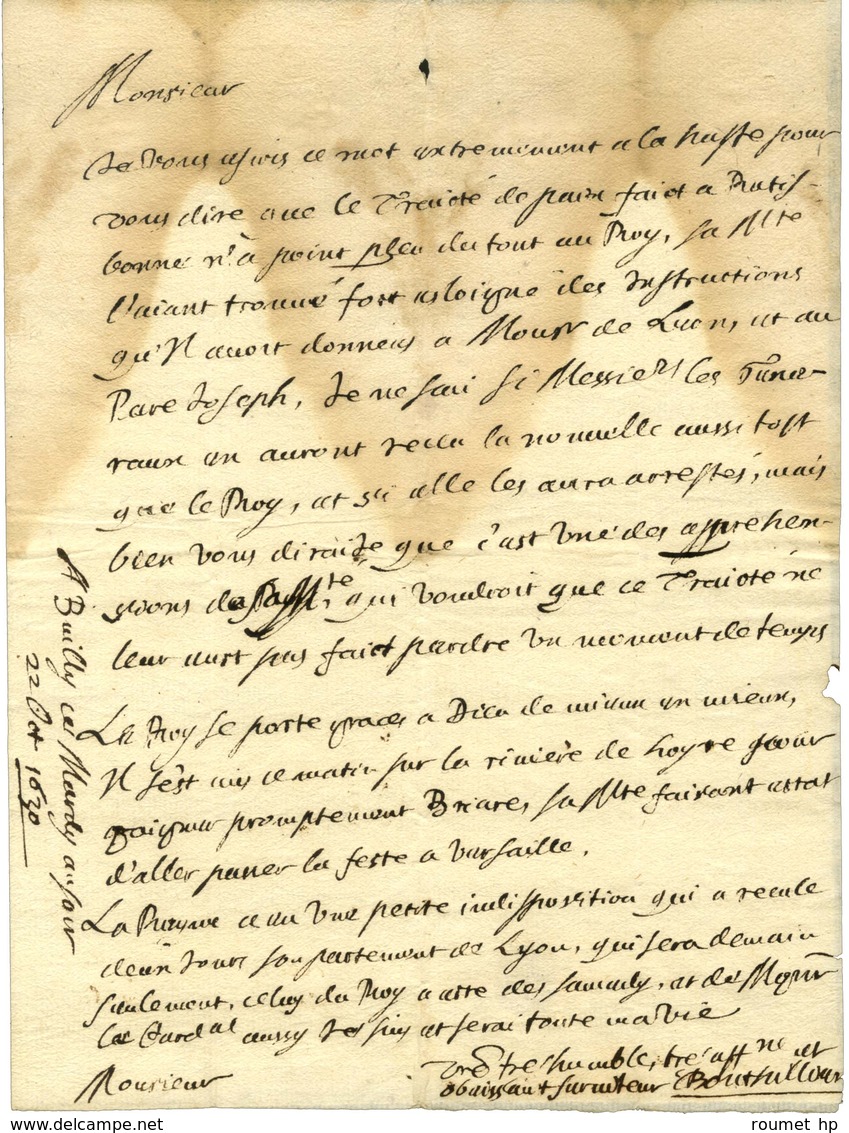 Monsieur
Je vous escris ce mot extremement a la haste pour
vous dire que le Traicté de paix faict a Ratis-
bonne n'a point pleu du tout au Roy, sa Mté
l'aiant trouvé fort esloigné des Instructions
qu'Il avoit données a Monsr de Leon, et au
Pere Joseph, Je ne sai si Messieurs les Géne-
raux en auront receu la nouvelle aussi tost
que le Roy, et si elle les aura arrestés, mais
bien vous dirai Je que c'est une des apprehen-
sions de Sa Mté, qui voudroit que ce Traicté ne
leur eust pas faict perdre un moment de temps
Le Roy se porte graces a Dieu de mieux en mieux,
Il s'est mis ce matin sur la riviere de Loyre pour
gaigner promptement Briare, sa Mté faisant estat
d'aller passer la feste a Versaille.
La Reyne a eu une petite indisposition qui a reculé
deux Jours son partement de Lyon, qui sera demain
seulement, celuy du Roy a esté des samedy, et de Mgnr
le Cardal aussy Je suis et serai toute ma vie
Monsieur
vre tres humble, tres affné et
obeissant serviteur Bouthillier
A Builly ce Mardy au soir
22 Oct 1630
roumet hp